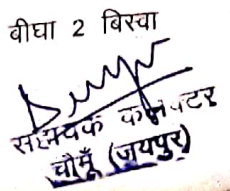 बीघा 2 बिस्वा
सहायक कलेक्टर
चौमूँ (जयपुर)